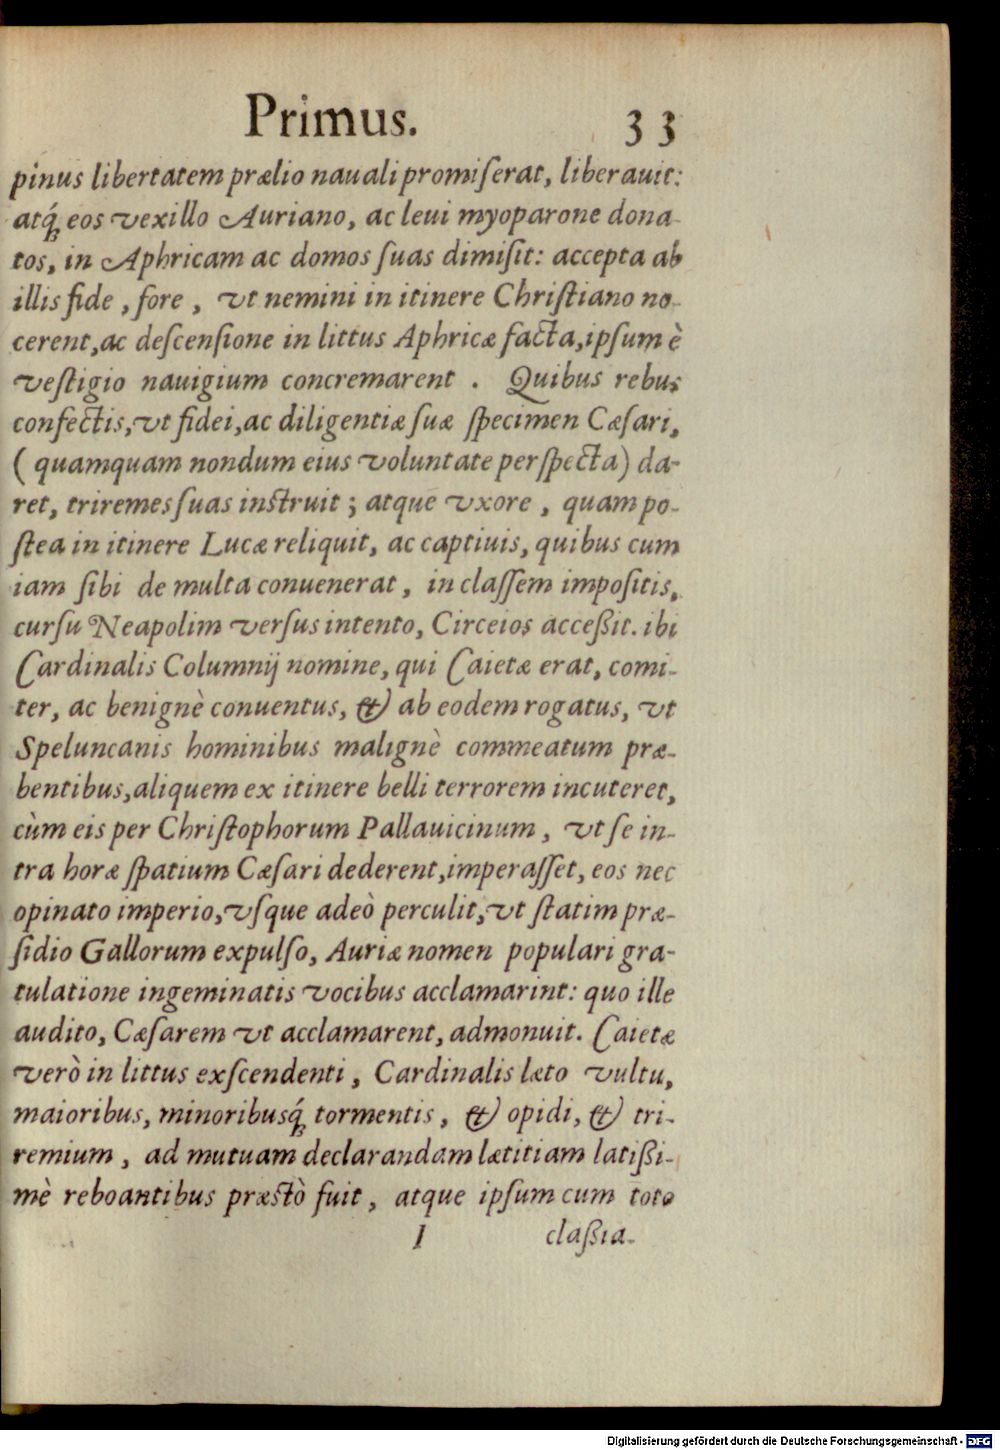 Primus. 33
pinus libertatem prælio nauali promiſerat, liberauit:
atq́ꝫ eos vexillo Auriano, ac leui myoparone dona-
tos, in Aphricam ac domos ſuas dimiſit: accepta ab
illis fide, fore, vt nemini in itinere Chriſtiano no-
cerent, ac deſcenſione in littus Aphricæ facta, ipſum è
veſtigio nauigium concremarent. Quibus rebus
confectis, vt fidei, ac diligentiæ ſuæ ſpecimen Cæſari,
(quamquam nondum eius voluntate perſpecta) da-
ret, triremes ſuas inſtruit; atque vxore, quam po-
ſtea in itinere Lucæ reliquit, ac captiuis, quibus cum
iam ſibi de multa conuenerat, in claſſem impoſitis,
curſu Neapolim verſus intento, Circeios acceßit. ibi
Cardinalis Columnij nomine, qui Caietæ erat, comi-
ter, ac benignè conuentus, & ab eodem rogatus, vt
Speluncanis hominibus malignè commeatum præ-
bentibus, aliquem ex itinere belli terrorem incuteret,
cùm eis per Chriſtophorum Pallauicinum, vt ſe in-
tra horæ ſpatium Cæſari dederent, imperaſſet, eos nec
opinato imperio, vſque adeò perculit, vt ſtatim præ-
ſidio Gallorum expulſo, Auriæ nomen populari gra-
tulatione ingeminatis vocibus acclamarint: quo ille
audito, Cæſarem vt acclamarent, admonuit. Caietæ
verò in littus exſcendenti, Cardinalis læto vultu,
maioribus, minoribusq́ꝫ tormentis, & opidi, & tri-
remium, ad mutuam declarandam lætitiam latißi-
mè reboantibus præstò fuit, atque ipſum cum toto
I claßia-
Digitalisierung gefördert durch die Deutsche Forschungsgemeinschaft - DFG